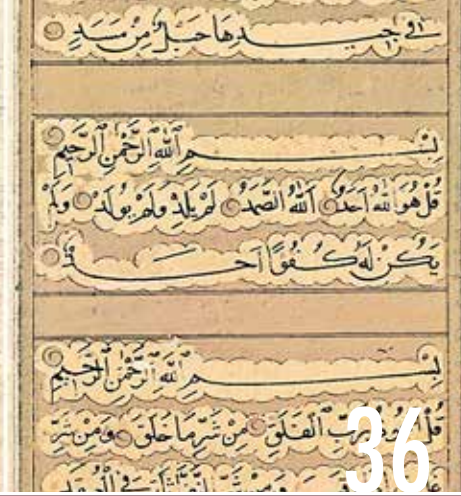 فِي جِيدِهَا حَبْلٌ مِنْ مَسَدٍ
بِسْمِ اللَّهِ الرَّحْمٰنِ الرَّحِيمِ
قُلْ هُوَ اللَّهُ اَحَدٌ اَللَّهُ الصَّمَدُ لَمْ يَلِدْ وَلَمْ يُولَدْ وَلَمْ
يَكُنْ لَهُ كُفُوًا اَحَدٌ
بِسْمِ اللَّهِ الرَّحْمٰنِ الرَّحِيمِ
قُلْ رَبِّ الْفَلَقِ مِنْ شَرِّ مَا خَلَقَ وَمِنْ شَرِّ
وَمِنْ شَرِّ النَّفَّاثَاتِ فِي
36